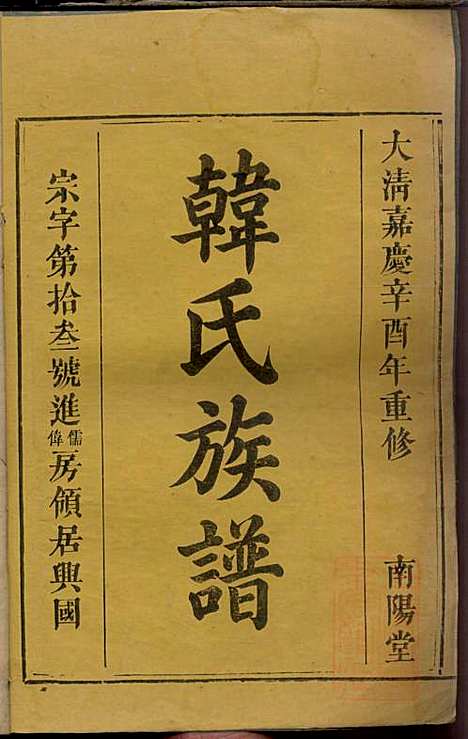 大清嘉慶辛酉年重修
南陽堂
韓氏族譜
宗字第拾叁號進儒偉房領居興國